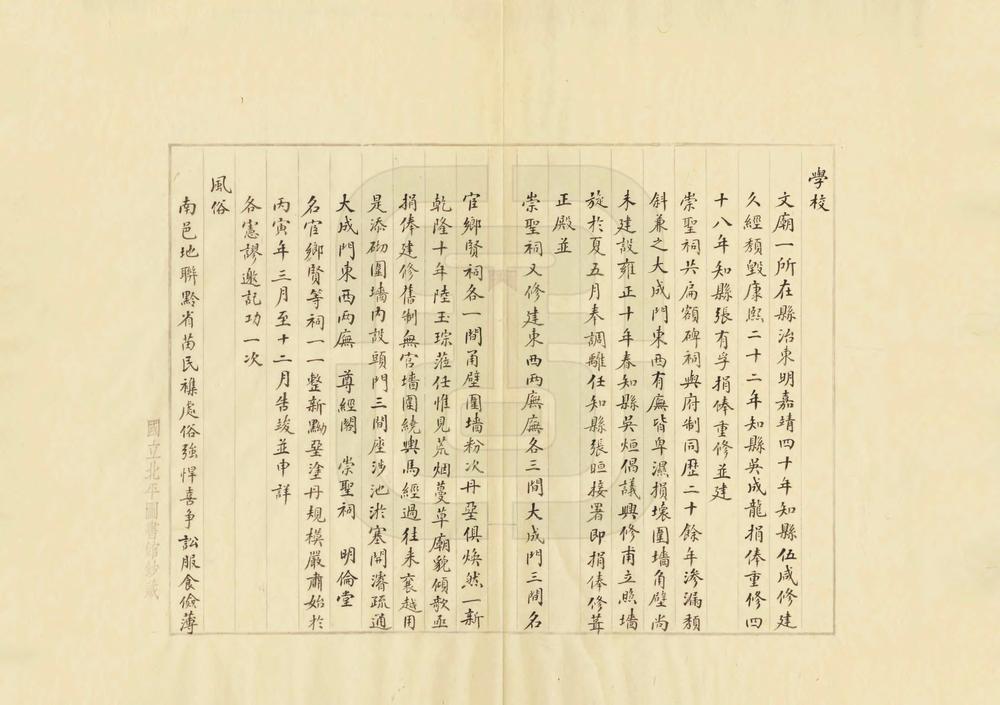 學校
文廟一所在縣治東明嘉靖四十年知縣伍咸修建
久經頹毀康熙二十二年知縣吳成龍捐俸重修四
十八年知縣張有孚捐俸重修並建
崇聖祠共扁額碑祠與府制同歷二十餘年滲漏頹
斜兼之大成門東西有廡皆卑濕損壞圍墻角壁尚
未建設雍正十年春知縣吳烜倡議興修甫立照墻
旋於夏五月奉調離任知縣張晅接署即捐俸修葺
正殿並
崇聖祠又修建東西兩廡廡各三間大成門三間名
宦鄉賢祠各一間甬壁圍墻粉次丹堊俱煥然一新
乾隆十年陸玉琮蒞任惟見荒烟蔓草廟貌傾欹亟
捐俸建修舊制無宮墻圍繞輿馬經過往來褻越用
是添砌圍墻內設頭門三間座涉池淤塞開濬疏通
大成門東西兩廡　尊經閣　崇聖祠　明倫堂
名宦鄉賢等祠一一整新黝堊塗丹規模嚴肅始於
丙寅年三月至十二月告竣並申詳
各憲謬邀記功一次
風俗
南邑地聯黔省苗民襍處俗強悍喜爭訟服食儉薄
國立北平圖書館鈔藏